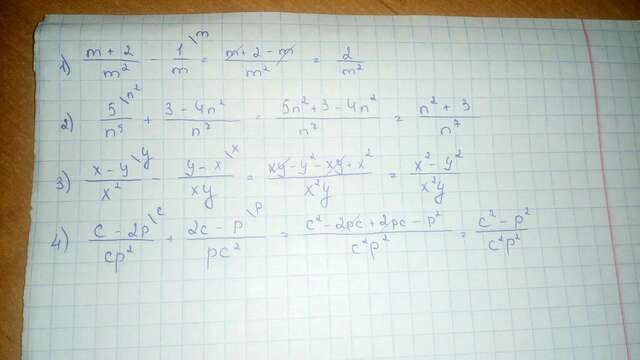 1) \frac{m+2}{m^2} - \frac{1}{m}^{\backslash m} = \frac{m+2-m}{m^2} = \frac{2}{m^2}
2) \frac{5}{n^5}^{\backslash n^2} + \frac{3-4n^2}{n^7} = \frac{5n^2+3-4n^2}{n^7} = \frac{n^2+3}{n^7}
3) \frac{x-y}{x^2}^{\backslash y} - \frac{y-x}{xy}^{\backslash x} = \frac{xy-y^2-xy+x^2}{x^2y} = \frac{x^2-y^2}{x^2y}
4) \frac{c-2p}{cp^2}^{\backslash c} + \frac{2c-p}{pc^2}^{\backslash p} = \frac{c^2-2pc+2pc-p^2}{c^2p^2} = \frac{c^2-p^2}{c^2p^2}